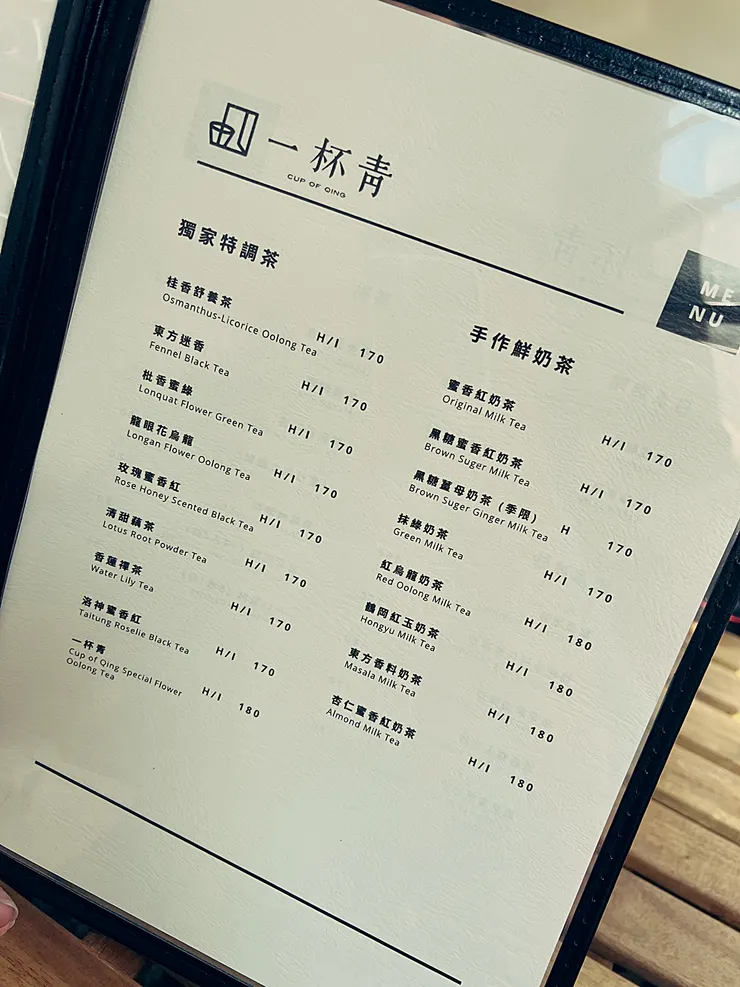 一杯青
CUP OF QING
MENU
獨家特調茶
桂香舒養茶
Osmanthus-Licorice Oolong Tea H/I 170
東方迷香
Fennel Black Tea H/I 170
枇香蜜綠
Lonquat Flower Green Tea H/I 170
龍眼花烏龍
Longan Flower Oolong Tea H/I 170
玫瑰蜜香紅
Rose Honey Scented Black Tea H/I 170
清甜藕茶
Lotus Root Powder Tea H/I 170
香蓮禪茶
Water Lily Tea H/I 170
洛神蜜香紅
Taitung Roselie Black Tea H/I 170
一杯青
Cup of Qing Special Flower
Oolong Tea H/I 180
手作鮮奶茶
蜜香紅奶茶
Original Milk Tea H/I 170
黑糖蜜香紅奶茶
Brown Suger Milk Tea H/I 170
黑糖薑母奶茶 (季限)
Brown Suger Ginger Milk Tea H 170
抹綠奶茶
Green Milk Tea H/I 170
紅烏龍奶茶
Red Oolong Milk Tea H/I 180
鶴岡紅玉奶茶
Hongyu Milk Tea H/I 180
東方香料奶茶
Masala Milk Tea H/I 180
杏仁蜜香紅奶茶
Almond Milk Tea H/I 180